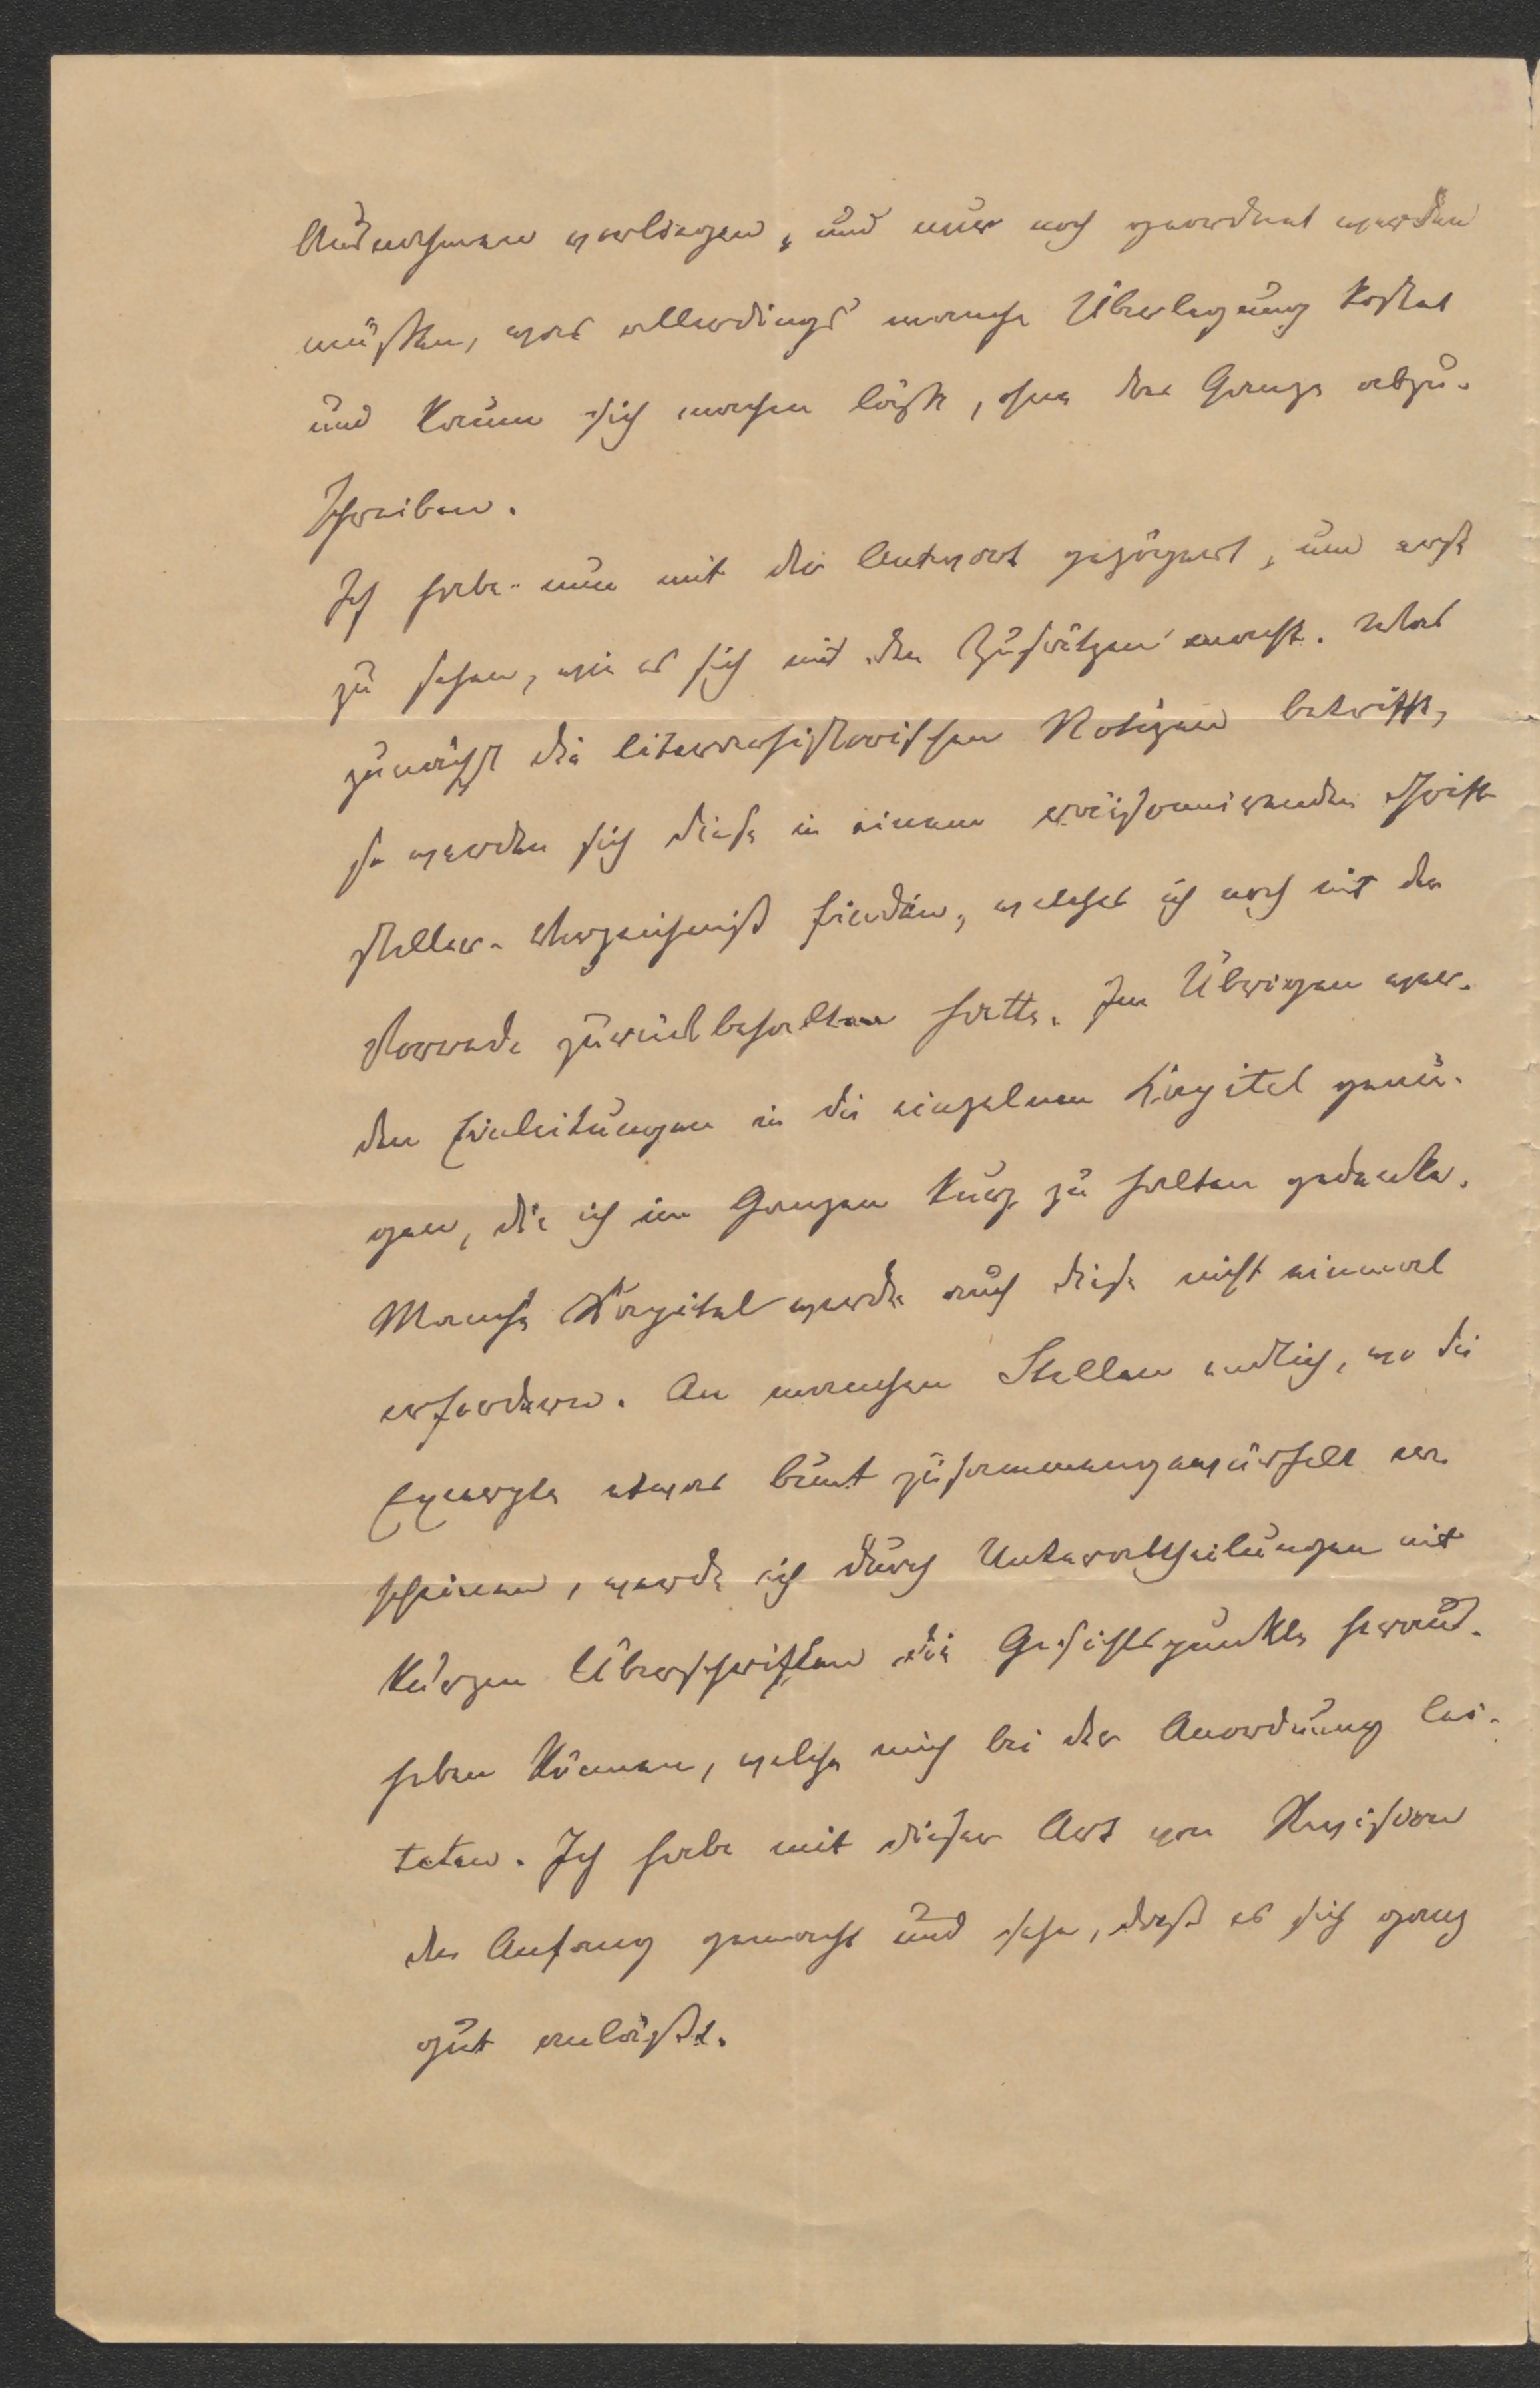 Ausnahmen vorliegen, und nur noch geordnet werden
müßten, was allerdings manche Überlegung kostet
und kaum sich machen läßt, ohne das Ganze abzu-
schreiben.
Ich habe nun mit der Antwort gezögert, um erst
zu sehen, wie es sich mit den Zusätzen macht. Was
zunächst die literarhistorischen Notizen betrifft,
so werden sich diese in einem räisonnirenden Schrift
steller-Verzeichniß finden, welches ich noch mit der
Vorrede zurückbehalten hatte. Im Übrigen wer-
den Einleitungen in die einzelnen Kapitel genü-
gen, die ich im Ganzen kurz zu halten gedenke.
Manche Kapitel werden auch diese nicht einmal
erfordern. An manchen Stellen endlich, wo die
Excerpte etwas bunt zusammengewürfelt er-
scheinen, werde ich durch Unterabtheilungen mit
kurzen Überschriften die Gesichtspunkte heraus-
heben können, welche mich bei der Anordnung lei-
teten. Ich habe mit dieser Art von Revision
den Anfang gemacht und sehe, daß es sich ganz
gut anläßt.